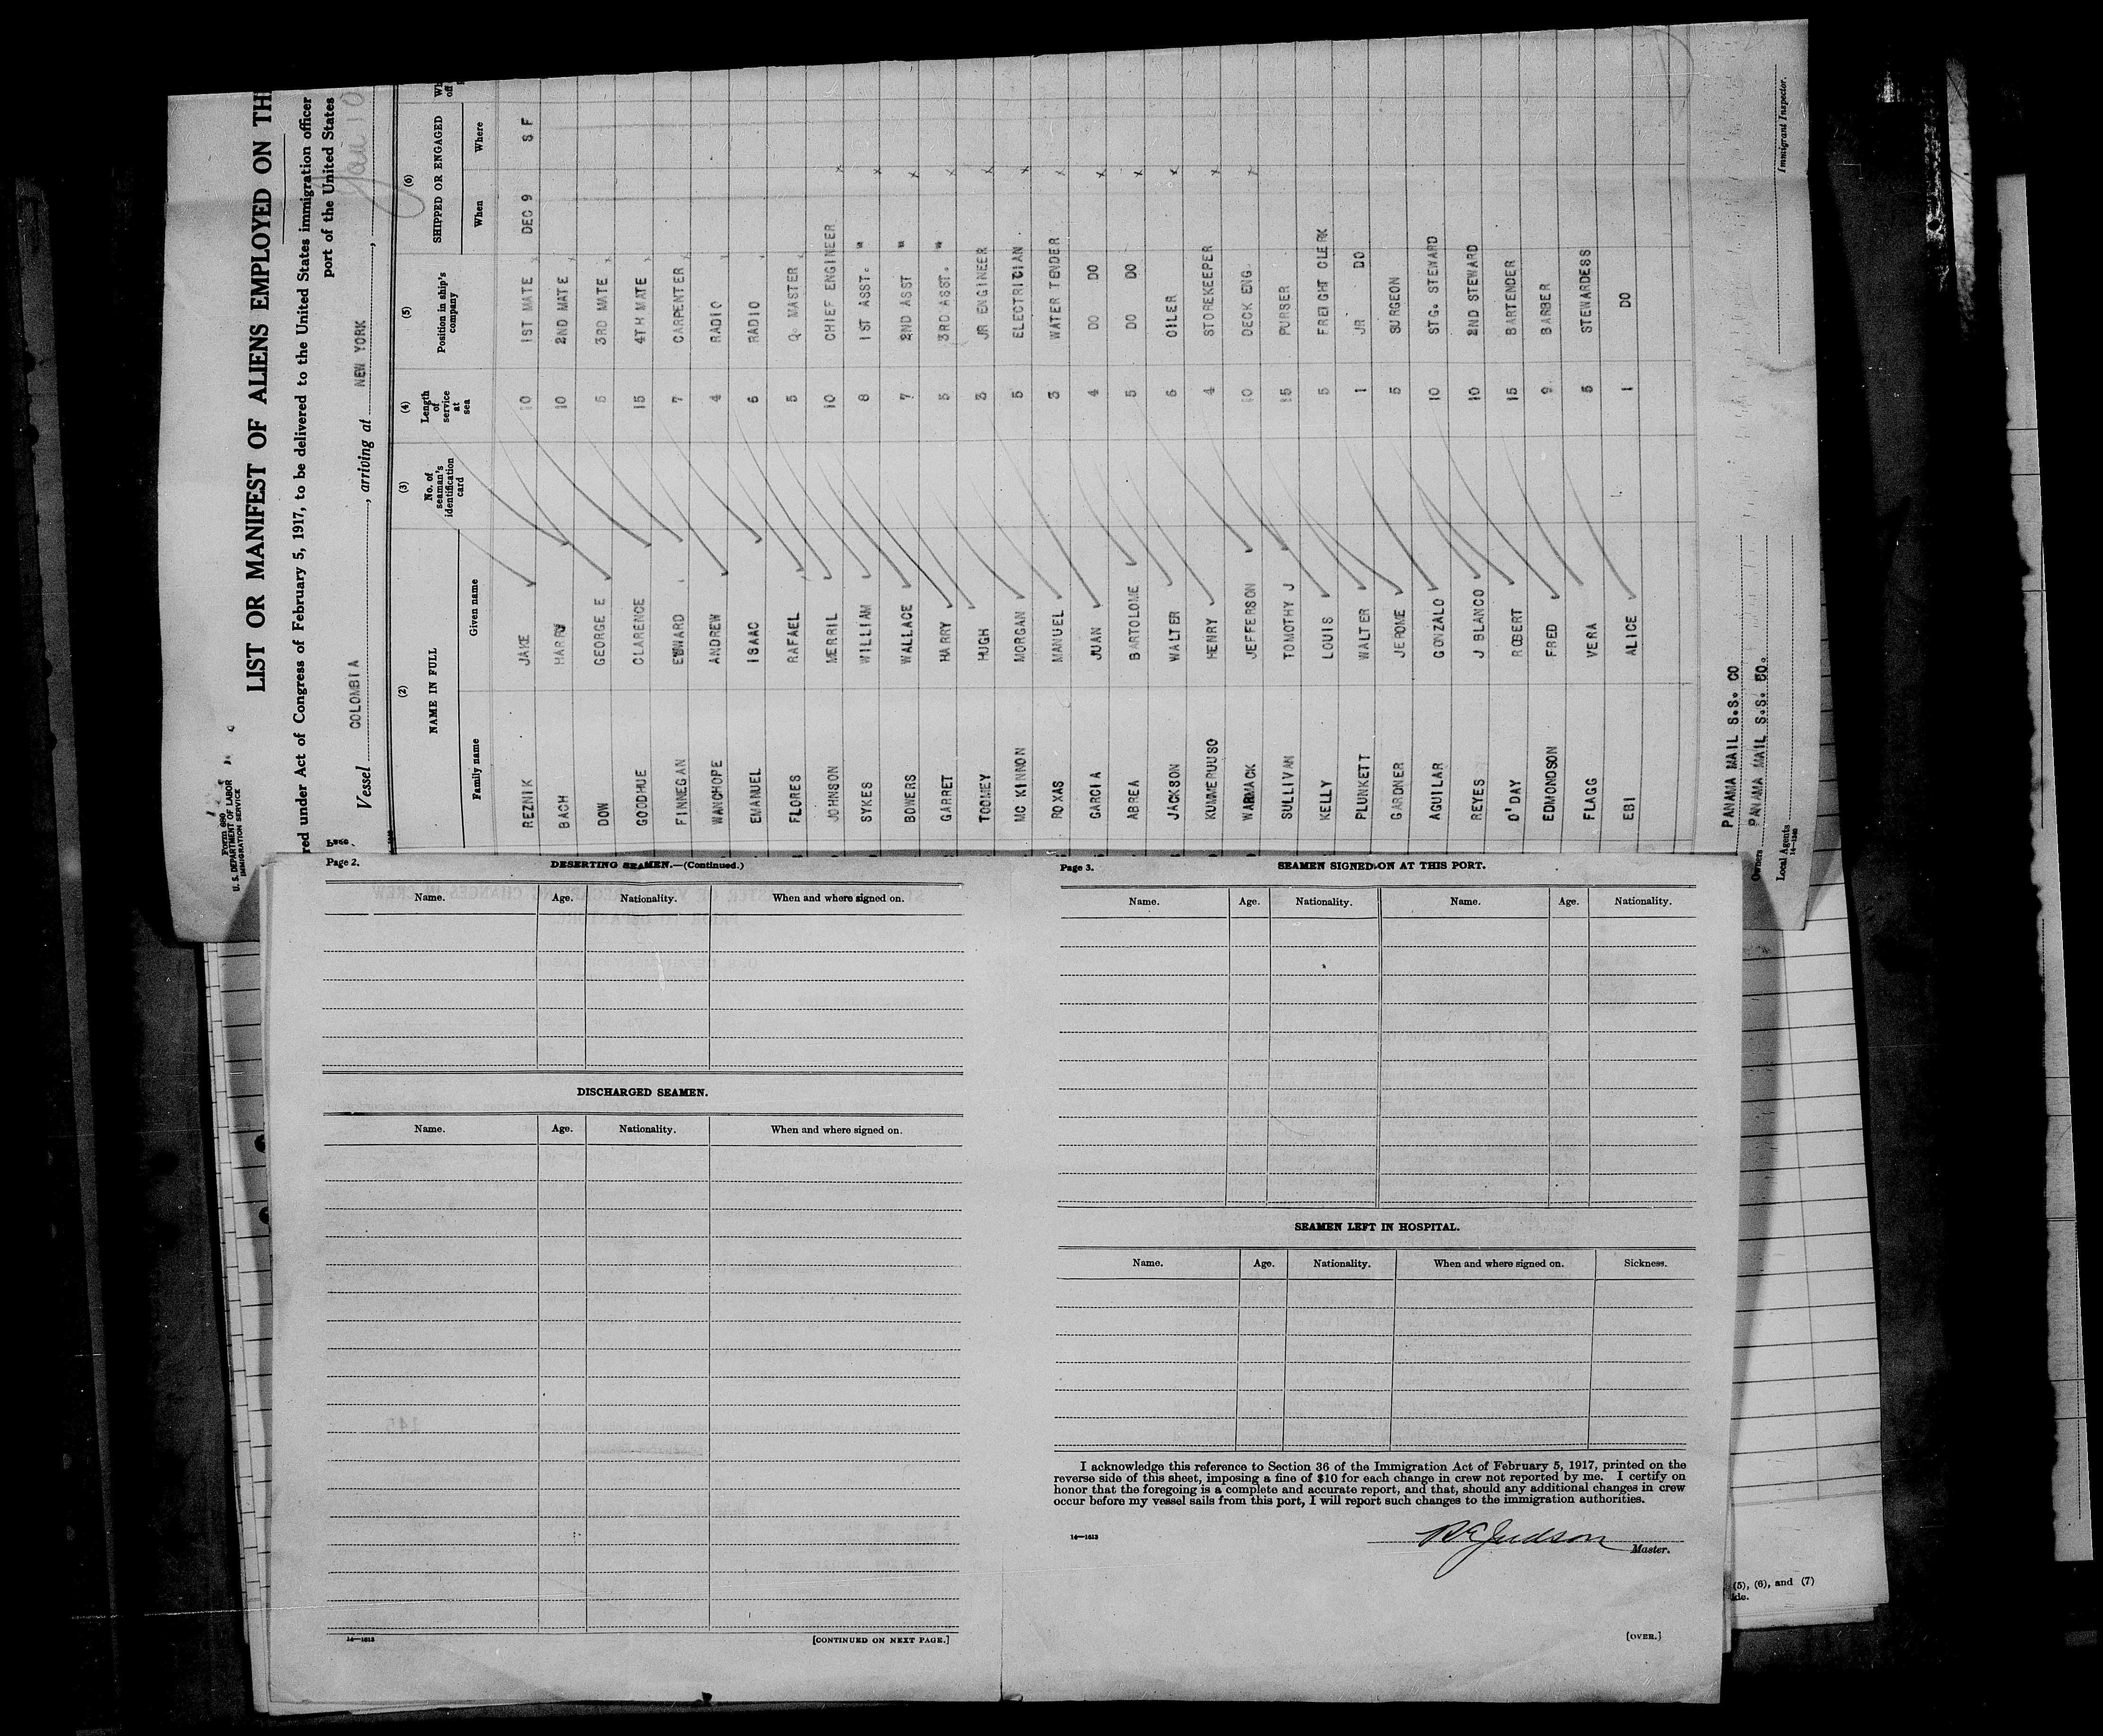 Form 680
U. S. DEPARTMENT OF LABOR
IMMIGRATION SERVICE
LIST OR MANIFEST OF ALIENS EMPLOYED ON TH
red under Act of Congress of February 5, 1917, to be delivered to the United States immigration officer
port of the United States
Vessel COLOMBIA, arriving at NEW YORK, Jan 10
(2) (3) (4) (5) (6)
NAME IN FULL No. of seaman's identification card Length of service at sea Position in ship's company SHIPPED OR ENGAGED
Family name Given name When Where
REZNIK JAKE 10 1ST MATE DEC 9 S F
BACH HARRY 10 2ND MATE
DOW GEORGE E 5 3RD MATE
GOODHUE CLARENCE 15 4TH MATE
FINNEGAN EDWARD 7 CARPENTER
WANCHOPE ANDREW 4 RADIO
EMANUEL ISAAC 6 RADIO
FLORES RAFAEL 5 Q. MASTER
JOHNSON MERRIL 10 CHIEF ENGINEER
SYKES WILLIAM 8 1ST ASST. "
BOWERS WALLACE 7 2ND ASST "
GARRET HARRY 5 3RD ASST. "
TOOMEY HUGH 3 JR ENGINEER
MC KINNON MORGAN 5 ELECTRICIAN
ROXAS MANUEL 3 WATER TENDER
GARCIA JUAN 4 DO DO
ABREA BARTOLOME 5 DO DO
JACKSON WALTER 6 OILER
KUMMERUUSO HENRY 4 STOREKEEPER
WARMACK JEFFERSON 10 DECK ENG.
SULLIVAN TOMOTHY J 15 PURSER
KELLY LOUIS 5 FREIGHT CLERK
PLUNKETT WALTER 1 JR DO
GARDNER JEROME 5 SURGEON
AGUILAR GONZALO 10 STG. STEWARD
REYES J BLANCO 10 2ND STEWARD
O'DAY ROBERT 15 BARTENDER
EDMONDSON FRED 9 BARBER
FLAGG VERA 5 STEWARDESS
EBI ALICE 1 DO
PANAMA MAIL S.S. CO
Owners PANAMA MAIL S.S. CO.
Local Agents
14—1240
Immigrant Inspector.
Page 2.
DESERTING SEAMEN.—(Continued.)
Name. Age. Nationality. When and where signed on.
DISCHARGED SEAMEN.
Name. Age. Nationality. When and where signed on.
14—1613
[CONTINUED ON NEXT PAGE.]
Page 3.
SEAMEN SIGNED ON AT THIS PORT.
Name. Age. Nationality. Name. Age. Nationality.
SEAMEN LEFT IN HOSPITAL.
Name. Age. Nationality. When and where signed on. Sickness.
I acknowledge this reference to Section 36 of the Immigration Act of February 5, 1917, printed on the
reverse side of this sheet, imposing a fine of $10 for each change in crew not reported by me. I certify on
honor that the foregoing is a complete and accurate report, and that, should any additional changes in crew
occur before my vessel sails from this port, I will report such changes to the immigration authorities.
14—1613
R E Judson
Master.
[OVER.]
(5), (6), and (7)
ide.